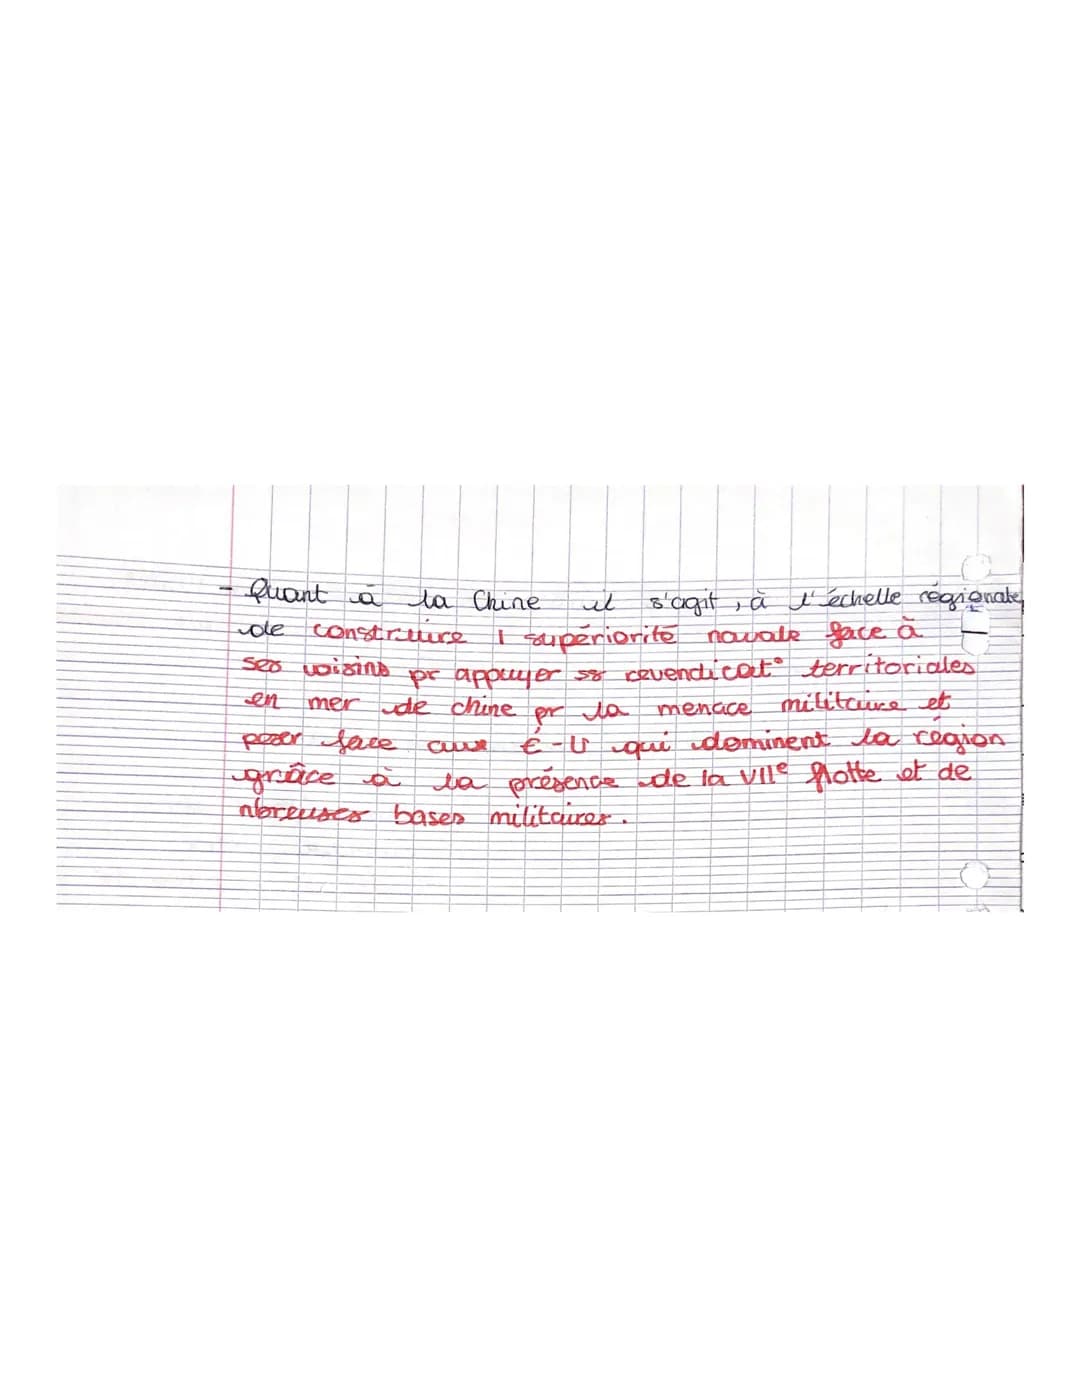 - Quant à la Chine il s'agit, à l'échelle régionale
de construire 1 supériorité navale face à
ses voisins pr appuyer ss revendicat° territoriales
en mer de chine pr la menace militaire et
peser face aux É-U qui dominent la région
grâce à la présence de la VIIe flotte et de
nbreuses bases militaires.